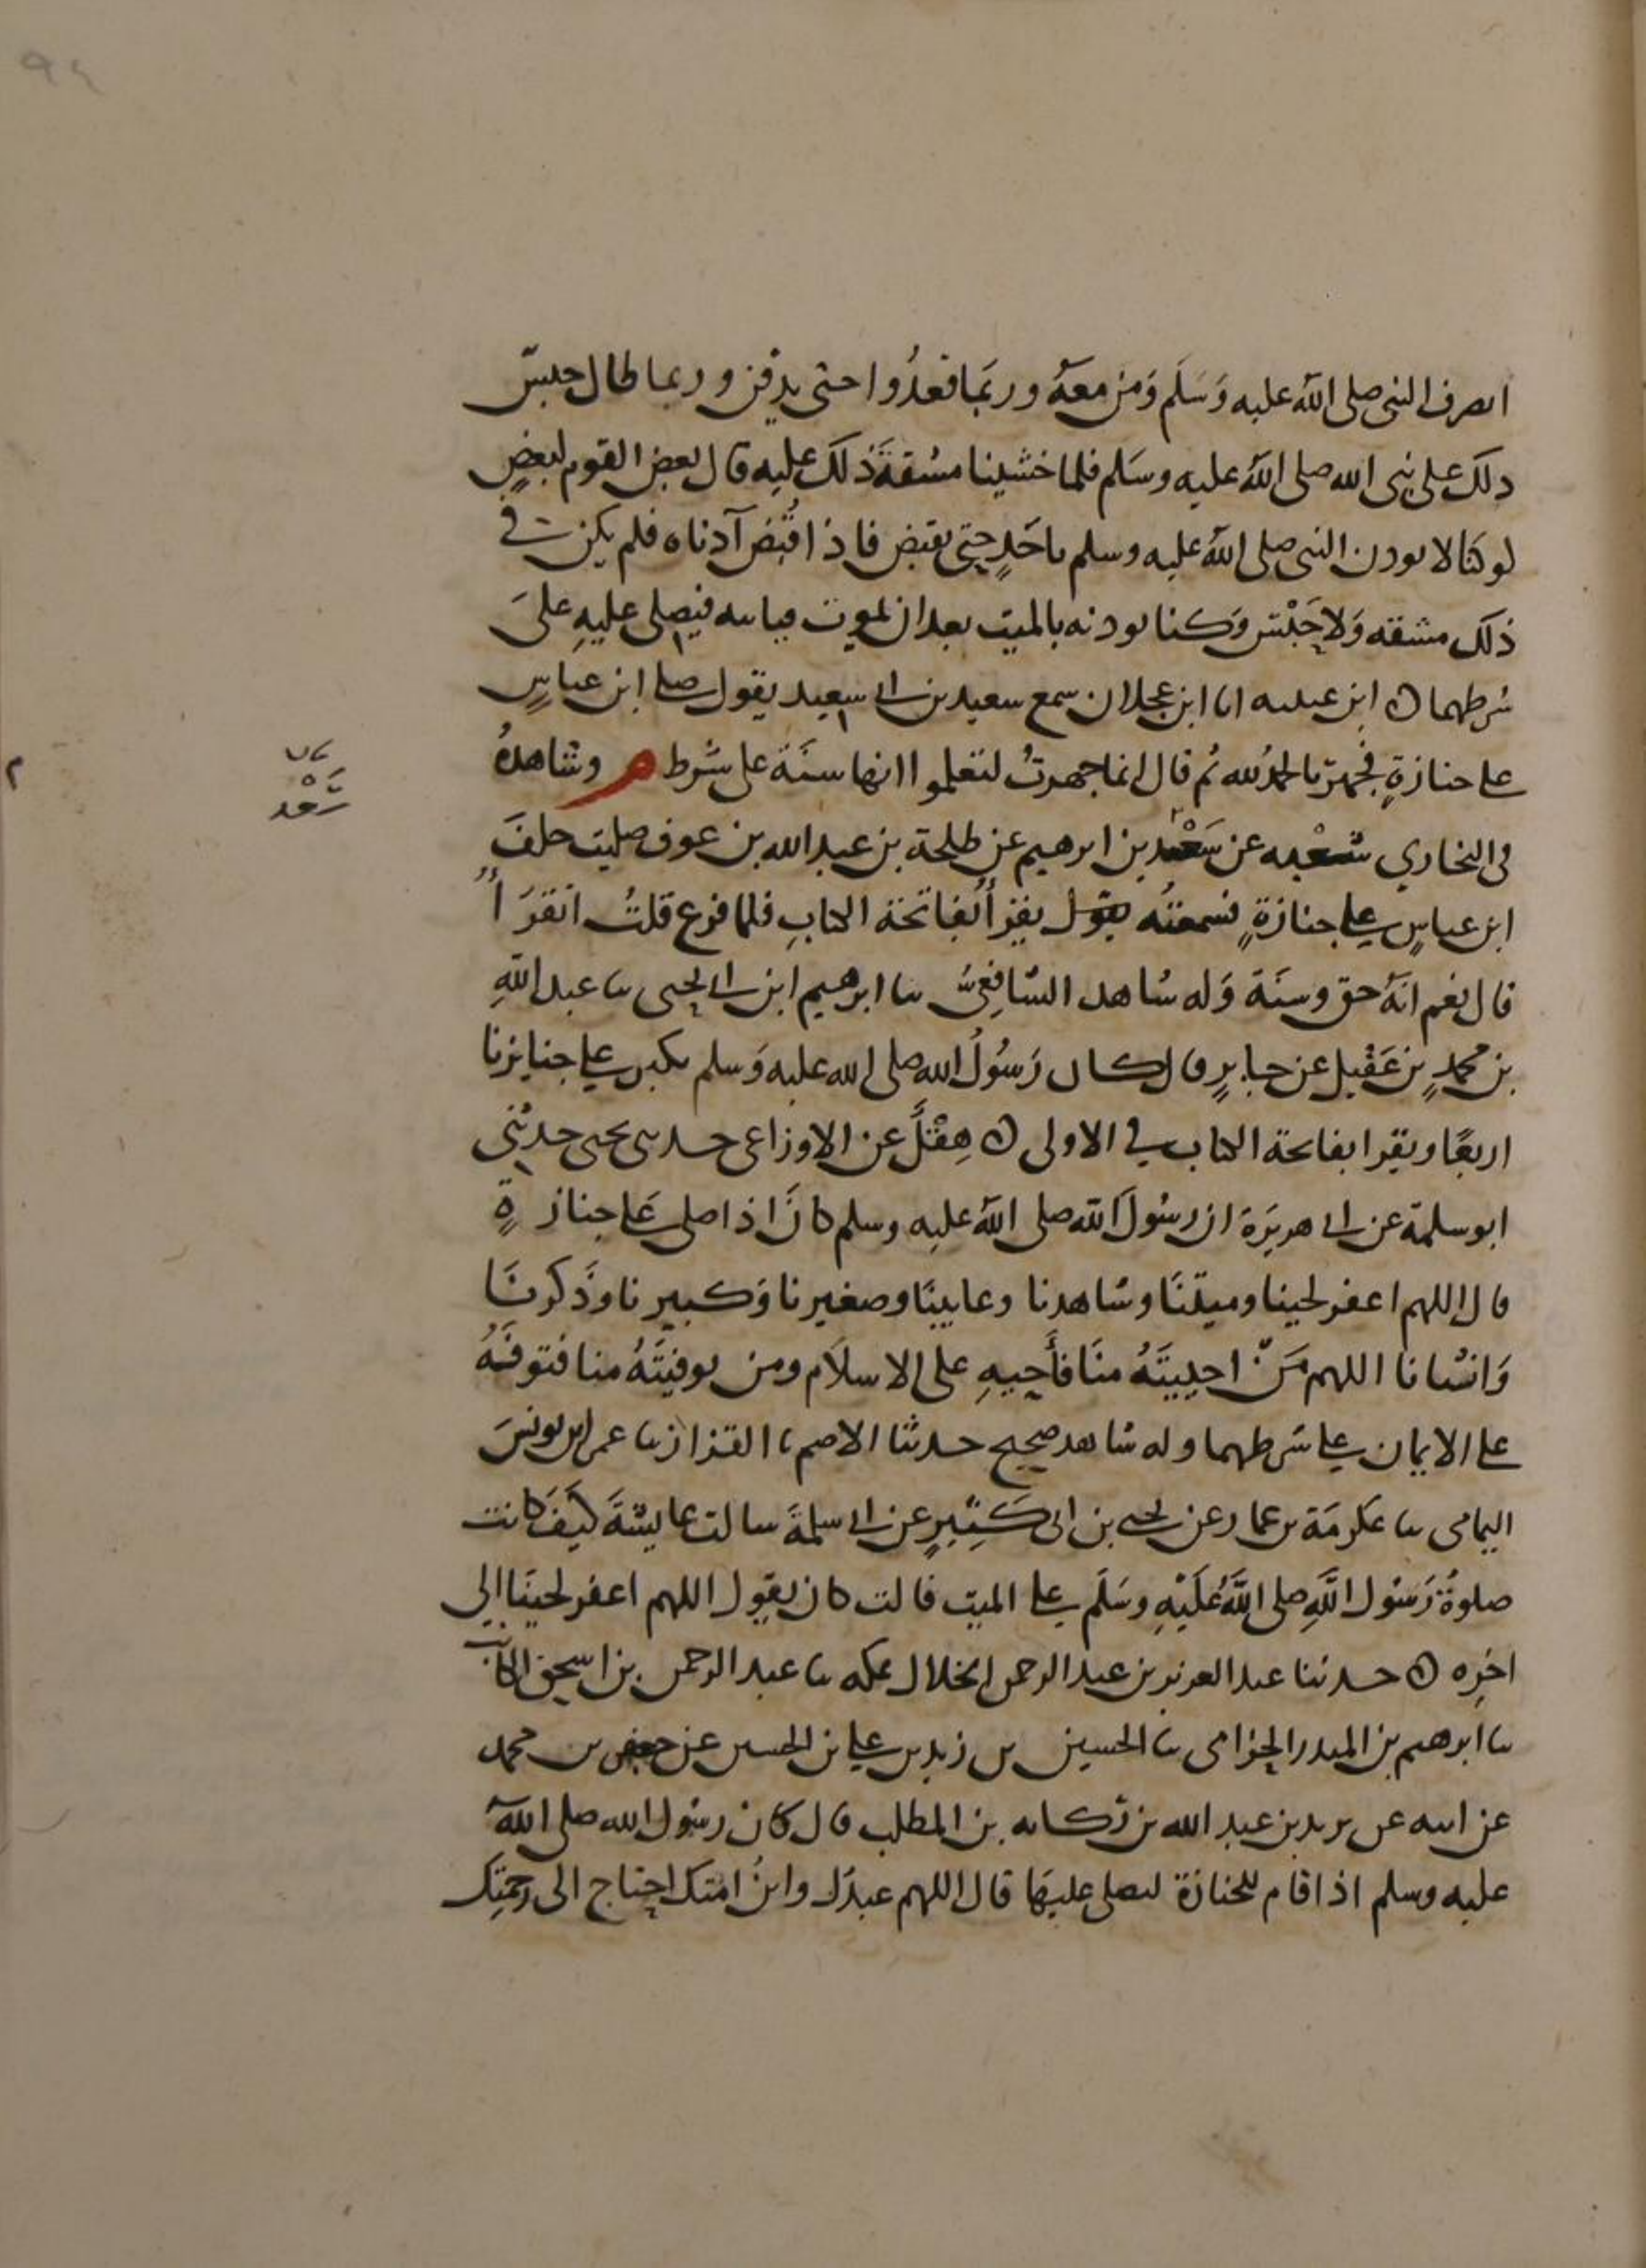 ٩٤
انصرف النبي صلى الله عليه وَسَلَم وَمن معهُ وربمَا قعدُوا حتى يدفن وربما طال حبسُ
ذلك على نبي الله صلى الله عليه وسَلم فلما خشينا مشقةَ ذلك عليه قال بعض القوم لبعضٍ
لو كنا لا نوذن النبي صلى الله عليه وسلم باحَدٍ حتى يقبض فاذا قُبضَ آذناه فلم يكن في
ذلك مشقه وَلا حَبْس وَكنا نوذنه بالميت بعد ان يموت فياتيه فيصلي عليهِ علىَ
شرطهما ه ابن عيينه انا ابن عجلان سمع سعيد بن ابي سعيد يقول صلى ابن عباسٍ
على جنازةٍ فجهر بالحمدُ لله ثم قال انما جهرتُ لتعلموا انها سنَة على شرط م وشاهدهُ
في البخاري شعْبه عن سَعْد بن ابرهيم عن طلحة بن عبد الله بن عوف صليت خلفَ
ابن عباسٍ على جنازةٍ فسمعتُه يقول يقرأُ بفاتحة الكتابِ فلما فرغ قلتُ اتقرَأُ
قال نعم انهُ حق وسنَة وَله شاهد الشافعيُّ ثنا ابرهيم ابن ابي يحيى ثنا عبد اللهِ
بن محمدٍ بن عَقيل عن جابرٍ قال كان رَسُولُ الله صلى الله عليه وَسلم يكبر على جنايزنا
اربعًا ويقرا بفاتحة الكتاب في الاولى ه هِقْلٌ عن الاوزاعي حدثني يحيى حدثني
ابو سلمة عن ابي هريَرة ان رسُولَ الله صلى الله عليه وسلم كانَ اذا صلى عَلى جنازةٍ
قال اللهم اغفر لحينا وميتنَا وشاهدنا وغايبنَا وصغيرنا وَكبيرنا وَذَكرنَا
وَانثانا اللهم مَنْ احييتَهُ منَا فأَحيهِ على الاسلاَم ومن توفيتَهُ منا فتوفَهُ
على الايمان على شرطهما وله شاهد صحيح حدثنا الاصم ثنا القزاز ثنا عمر ابن يونسَ
اليمامي ثنا عكرمَة بن عمار عن يحيى بن ابي كَثِيرٍ عن ابي سلمةَ سالت عايشةَ كَيفَ كانت
صلوةُ رَسُول اللَّهِ صلى اللَّهُ عَلَيْهِ وسَلَم على الميت قالت كان يقول اللهم اغفر لحينَا الى
اخره ه حدثنا عبد العزيز بن عبد الرحمن الخلال بمكه ثنا عبد الرحمن بن اسحق الكاتب
ثنا ابرهيم بن المنذر الحزامي ثنا الحسين بن زيد بن علي بن الحسين عن جعفر بن محمد
عن ابيه عن يزيد بن عبد الله بن رُكانه بن المطلب قال كان رسُول الله صلى اللهُ
عليه وسلم اذا قام للجنازة ليصلي عليهَا قال اللهم عبدُك وابنُ امَتك احتاج الى رحمتِك
بيان
سَعْد